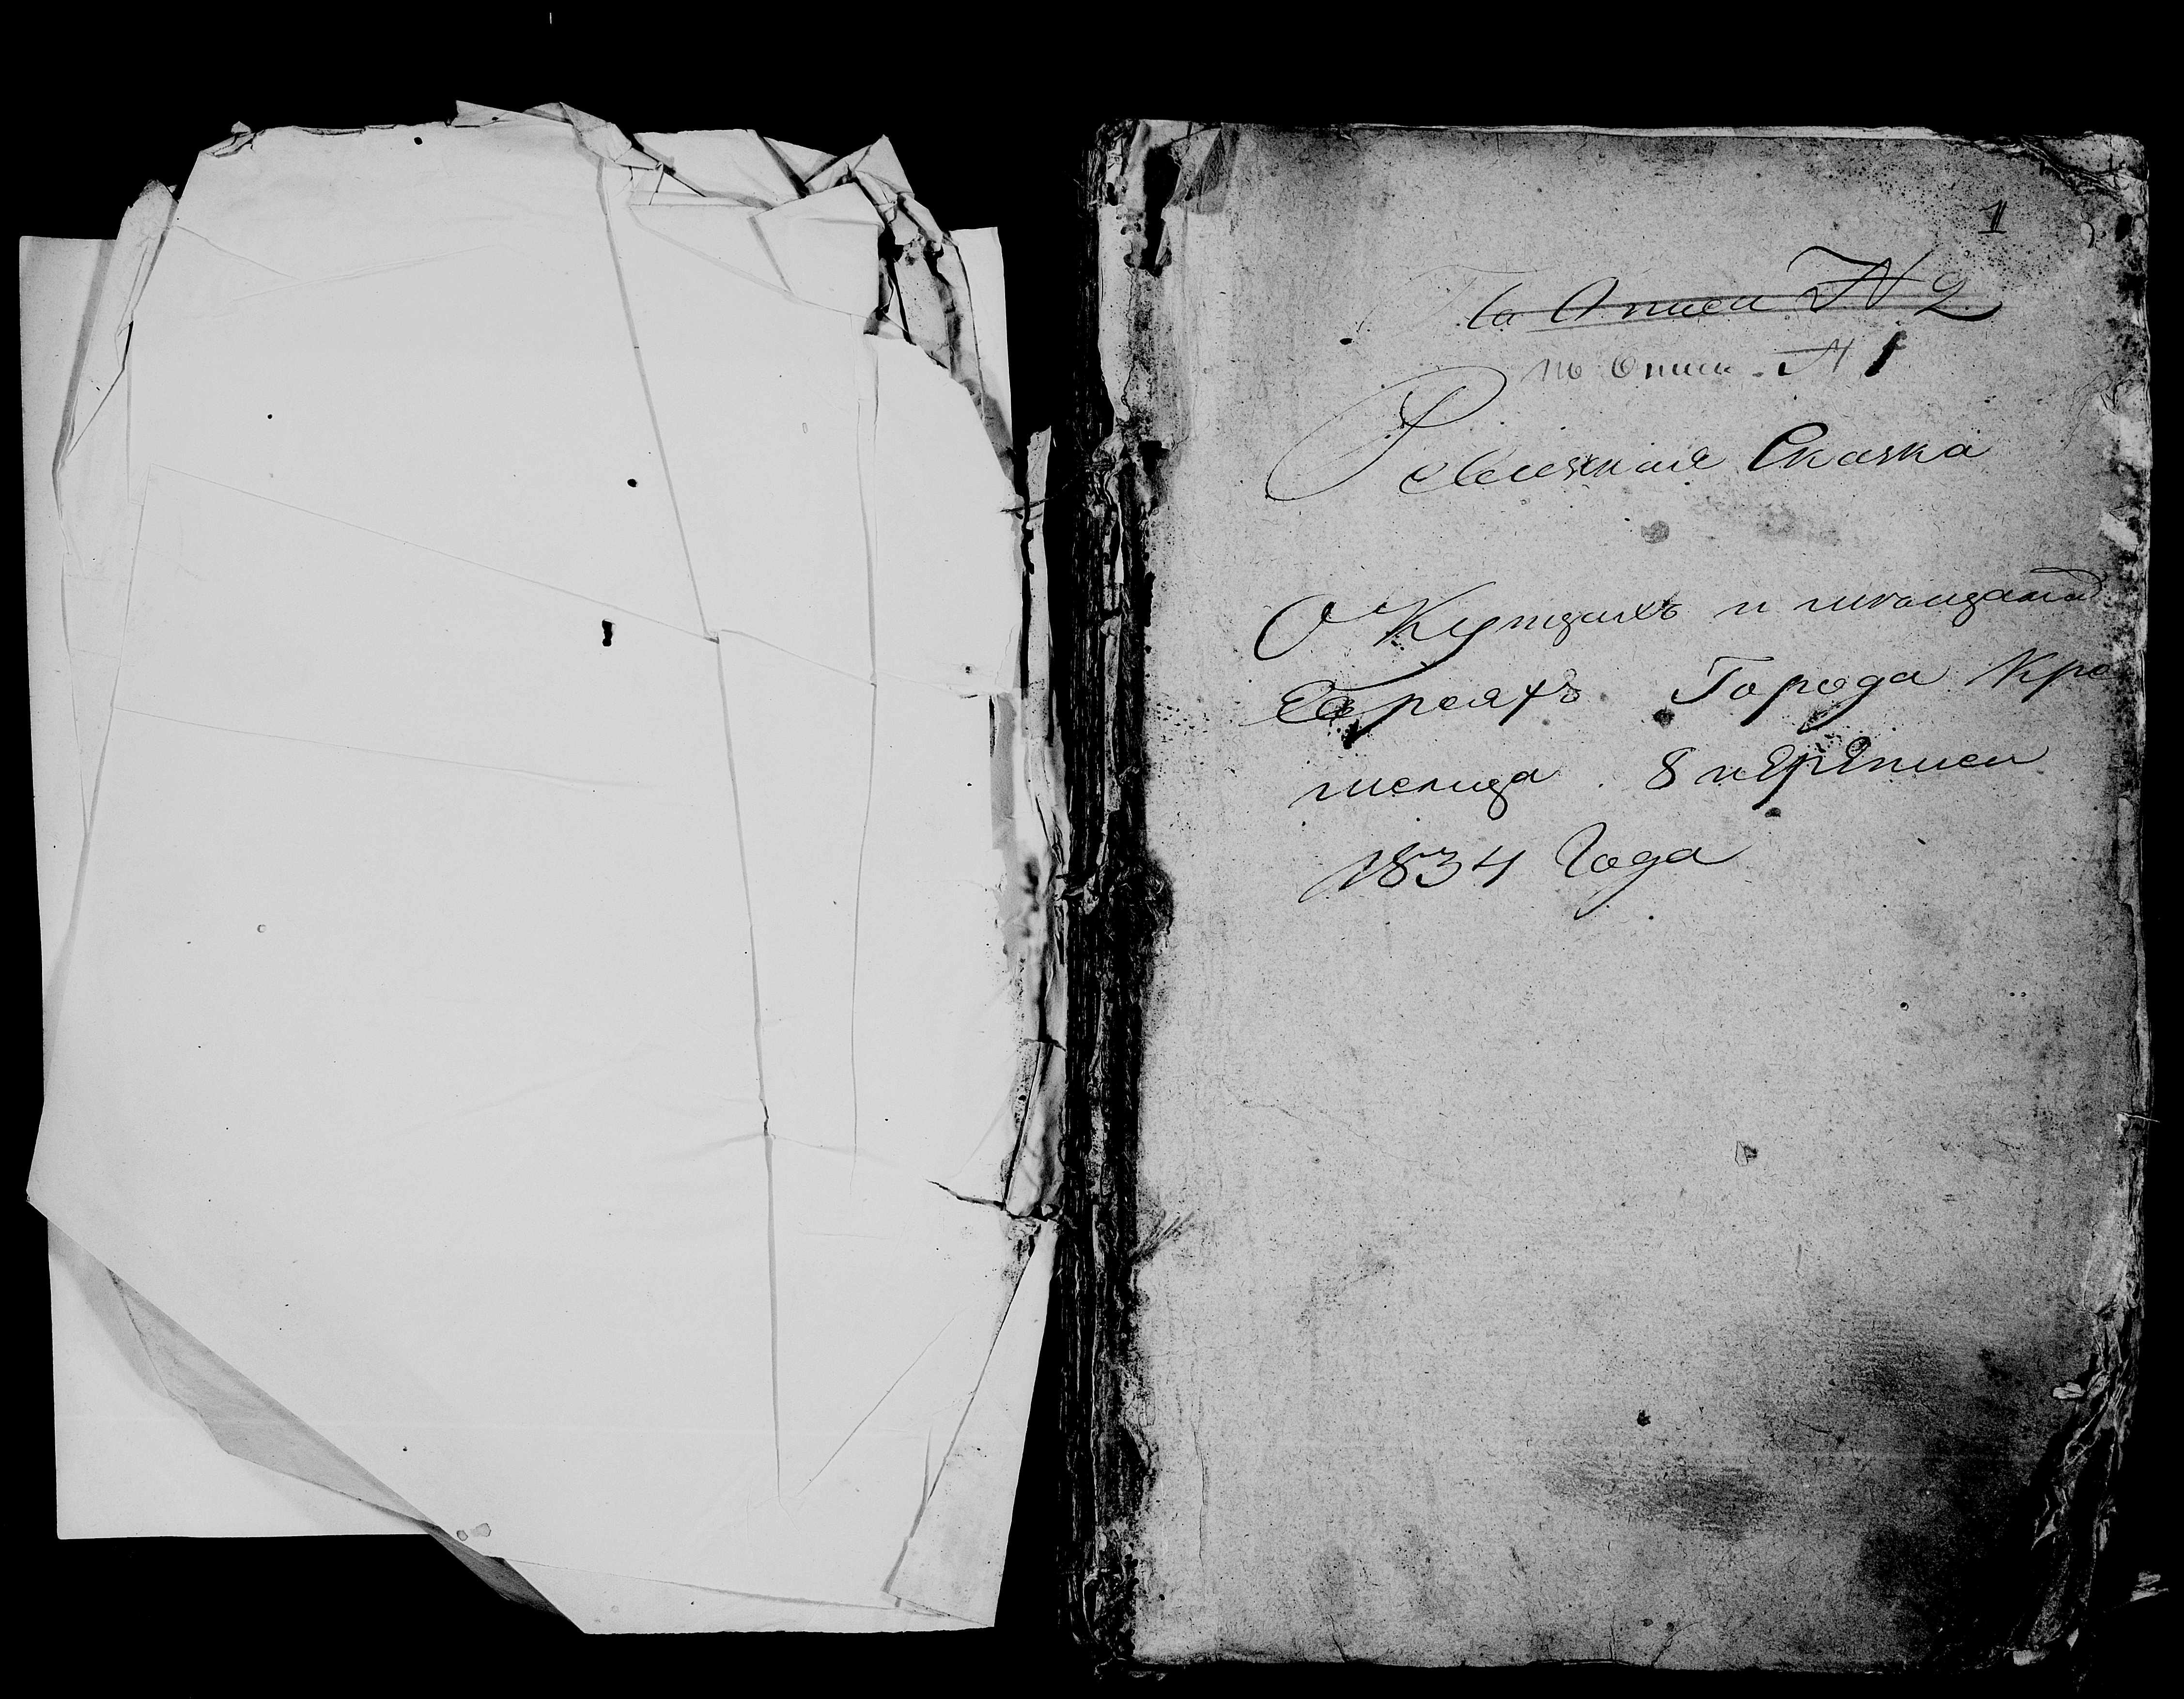 1
Со Описи N 2
по описи N 1
Ревизская Сказка
О Купцахъ и мещанахъ
Евреяхъ Города Кре
менца 8 переписи
1834 Года